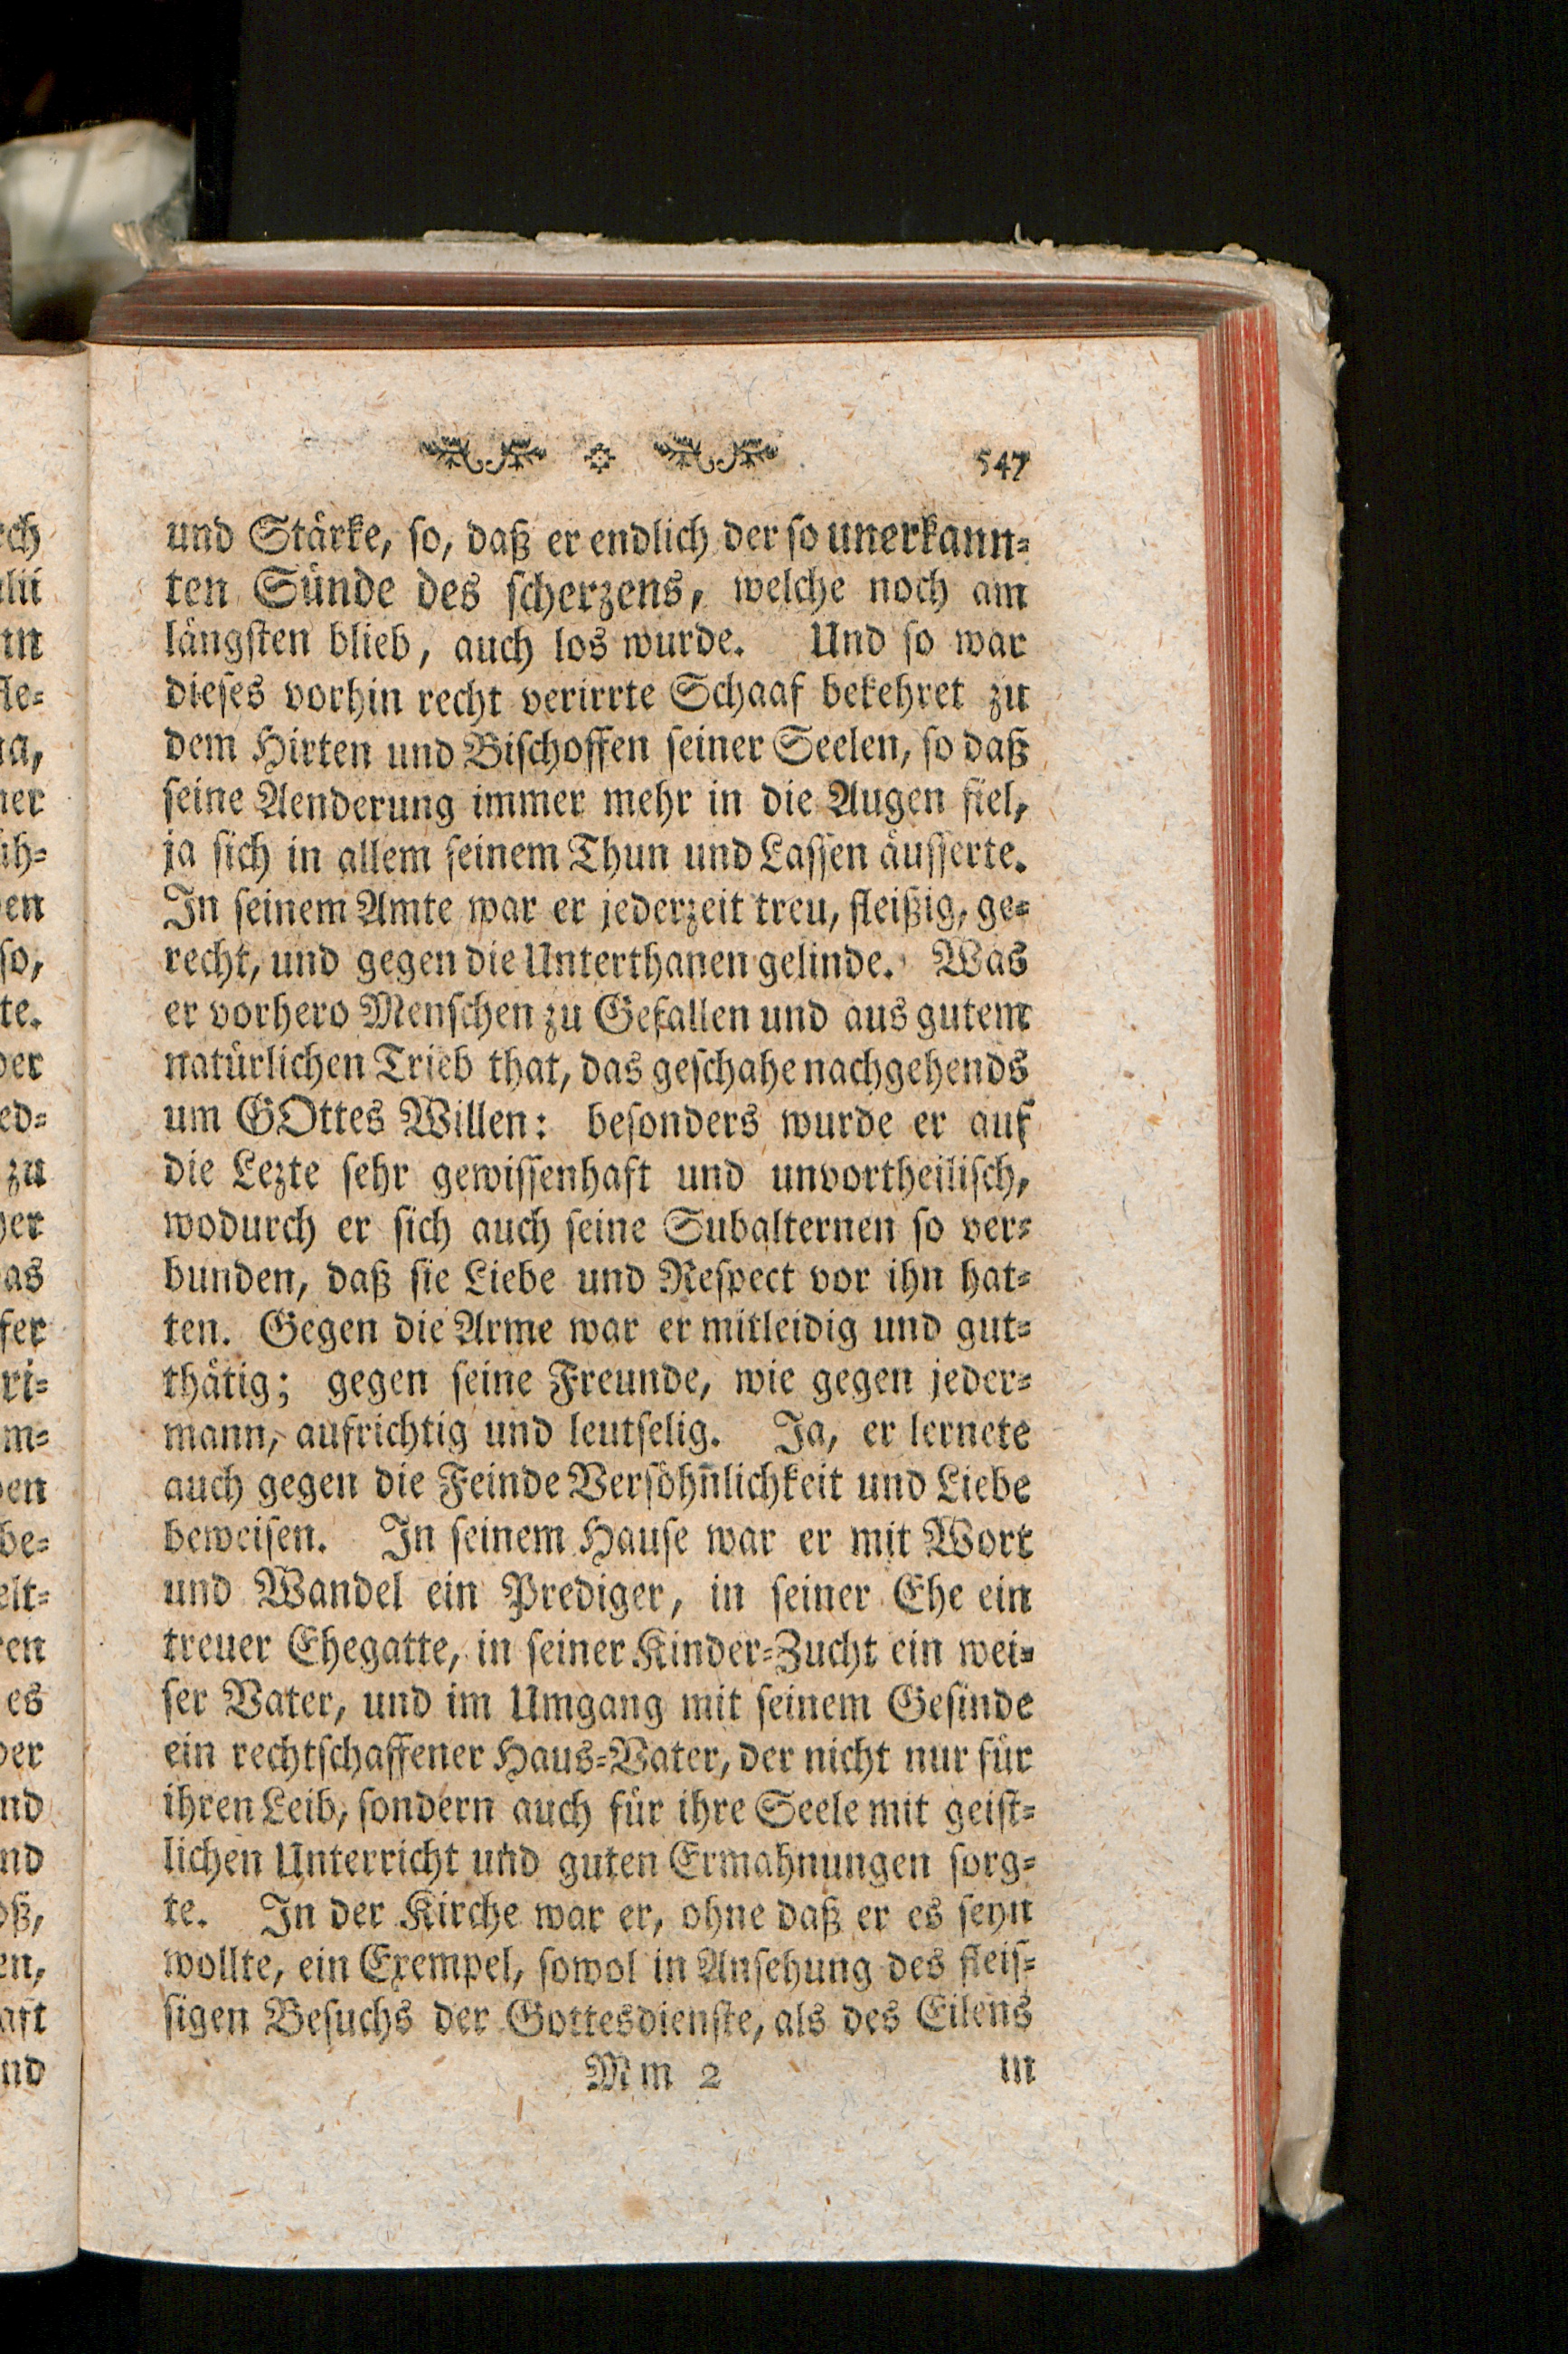 547
und Stärke, so, daß er endlich der so unerkann=
ten Sünde des scherzens, welche noch am
längsten blieb, auch los wurde. Und so war
dieses vorhin recht verirrte Schaaf bekehret zu
dem Hirten und Bischoffen seiner Seelen, so daß
seine Aenderung immer mehr in die Augen fiel,
ja sich in allem seinem Thun und Lassen äusserte.
In seinem Amte war er jederzeit treu, fleißig, ge=
recht, und gegen die Unterthanen gelinde. Was
er vorhero Menschen zu Gefallen und aus gutem
natürlichen Trieb that, das geschahe nachgehends
um GOttes Willen: besonders wurde er auf
die Lezte sehr gewissenhaft und unvortheilisch,
wodurch er sich auch seine Subalternen so ver=
bunden, daß sie Liebe und Respect vor ihn hat=
ten. Gegen die Arme war er mitleidig und gut=
thätig; gegen seine Freunde, wie gegen jeder=
mann, aufrichtig und leutselig. Ja, er lernete
auch gegen die Feinde Versöhn̄lichkeit und Liebe
beweisen. In seinem Hause war er mit Wort
und Wandel ein Prediger, in seiner Ehe ein
treuer Ehegatte, in seiner Kinder=Zucht ein wei=
ser Vater, und im Umgang mit seinem Gesinde
ein rechtschaffener Haus=Vater, der nicht nur für
ihren Leib, sondern auch für ihre Seele mit geist=
lichen Unterricht und guten Ermahnungen sorg=
te. In der Kirche war er, ohne daß er es seyn
wollte, ein Exempel, sowol in Ansehung des fleis=
sigen Besuchs der Gottesdienste, als des Eilens
Mm 2 in